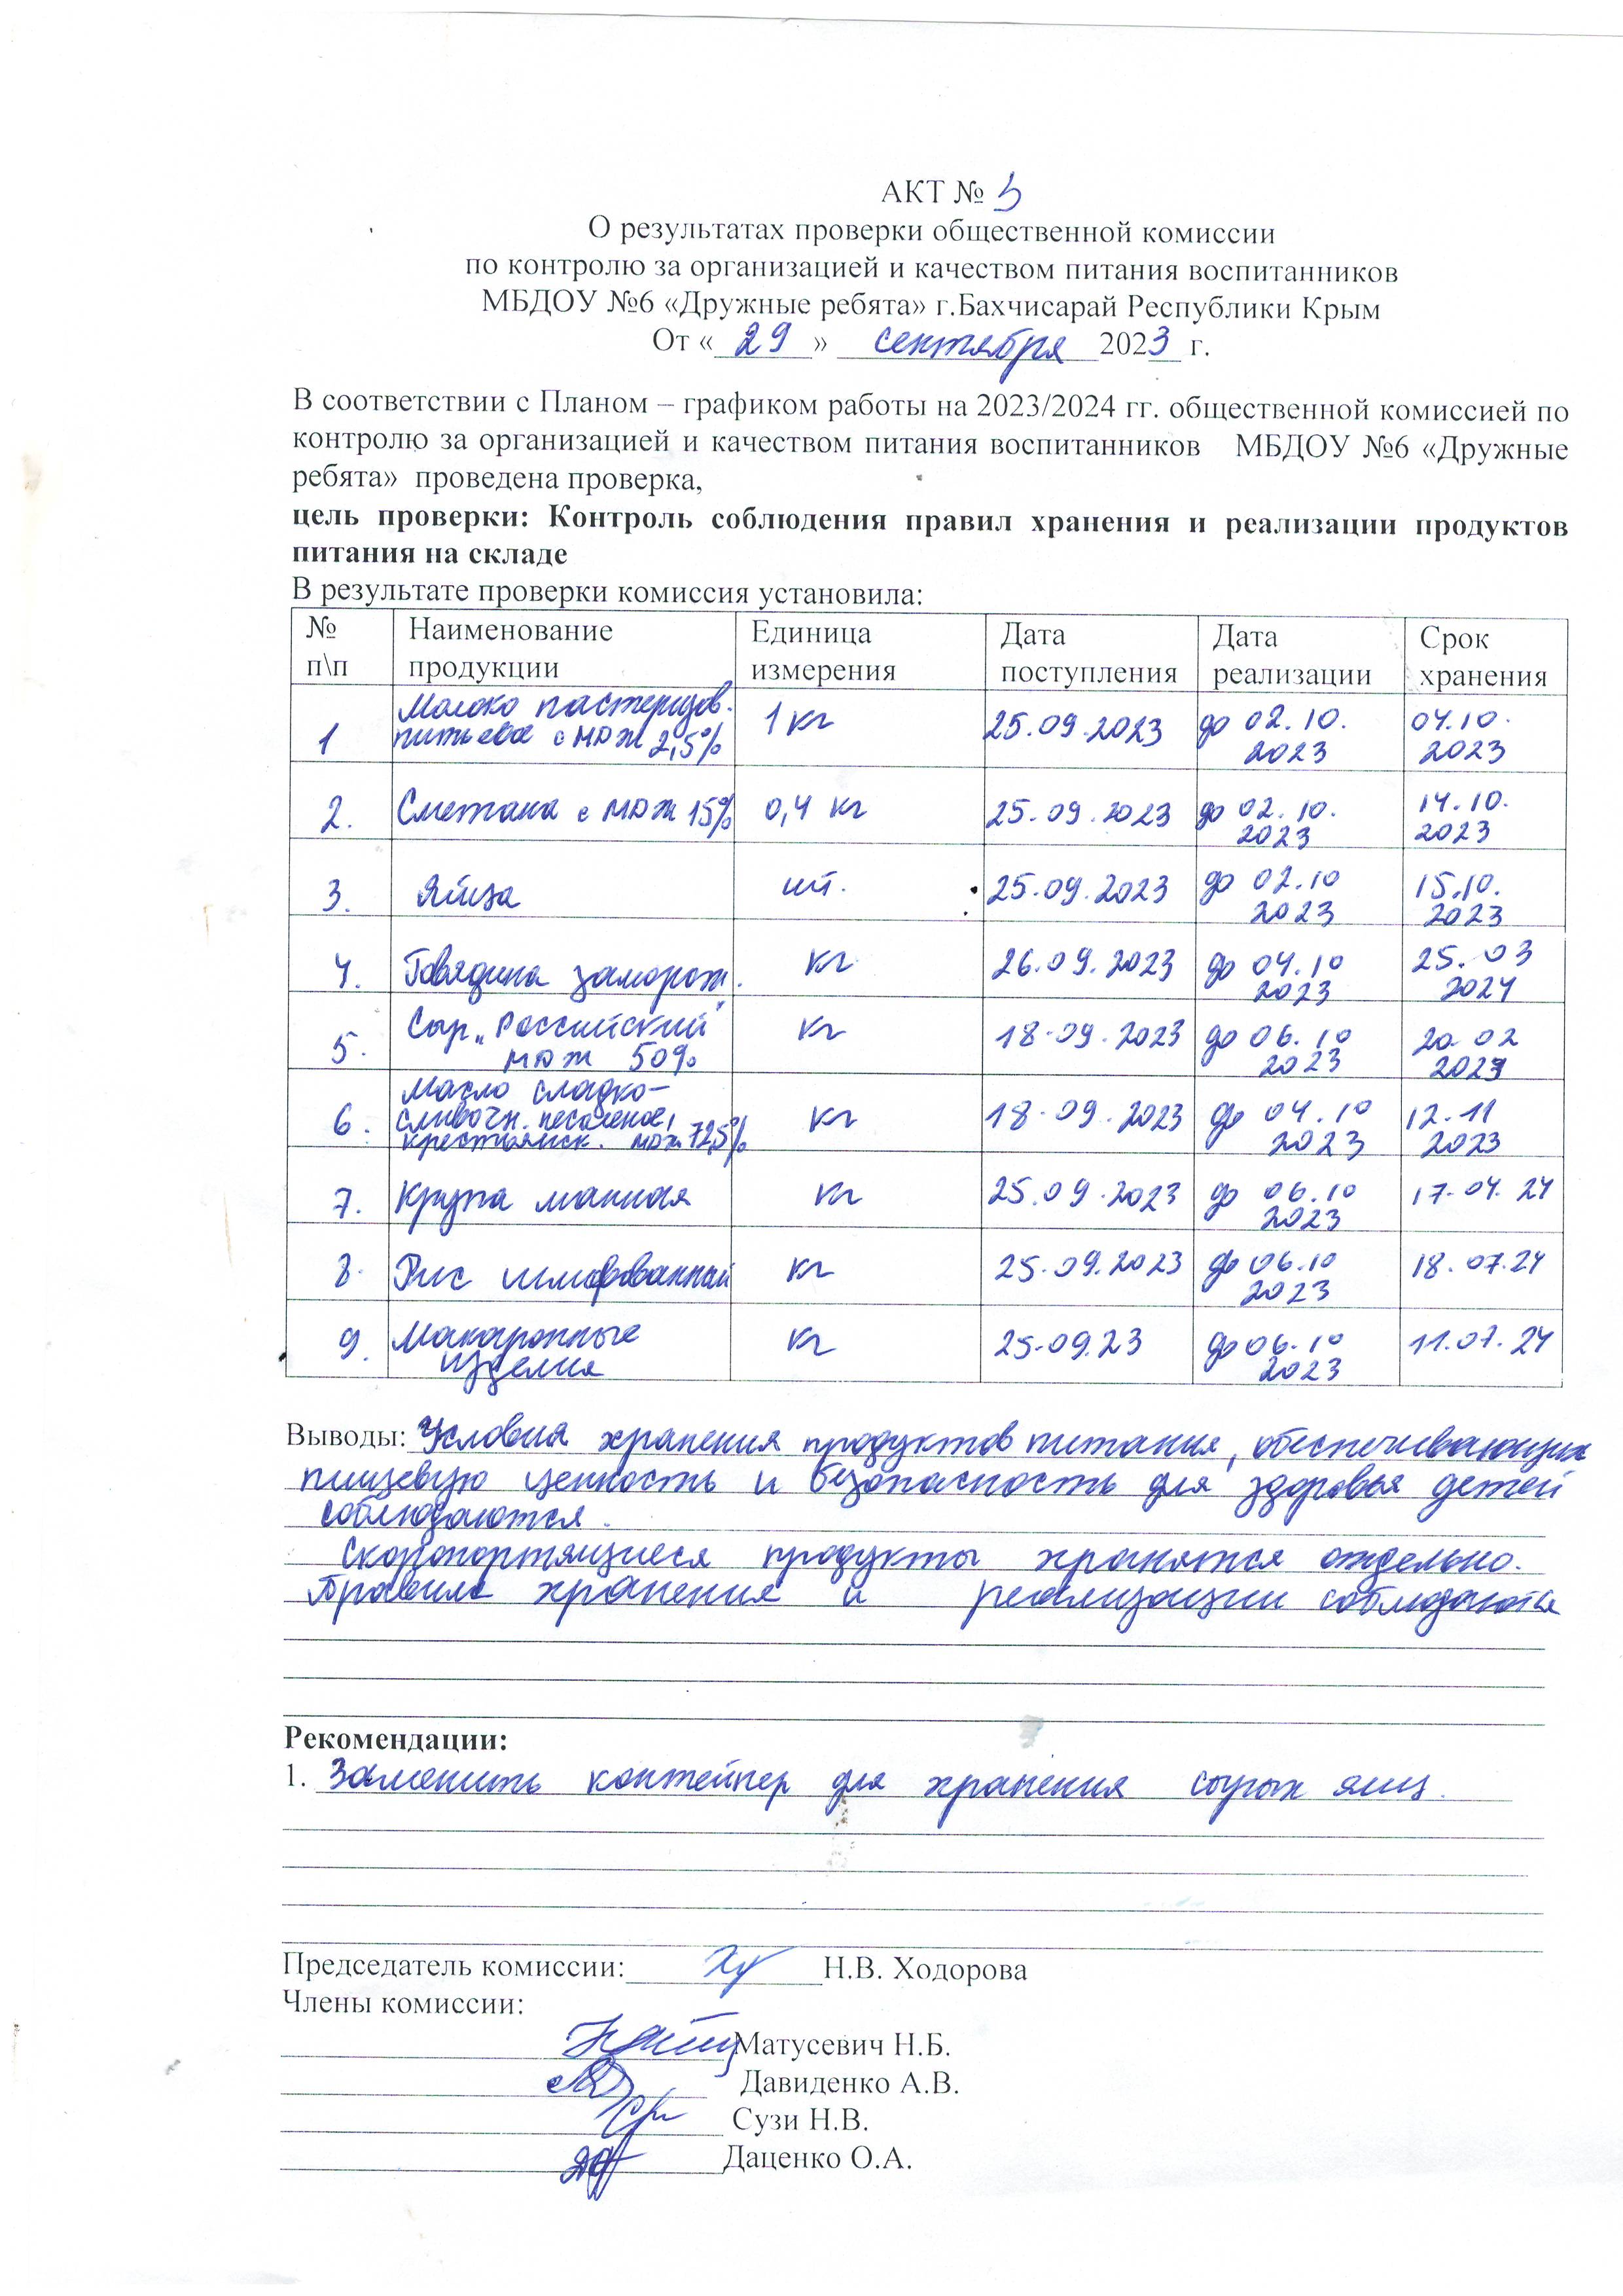 АКТ №
О результатах проверки общественной комиссии
по контролю за организацией и качеством питания воспитанников
МБДОУ №6 «Дружные ребята» г.Бахчисарай Республики Крым
От « 29 » сентября 2023 г.
В соответствии с Планом – графиком работы на 2023/2024 гг. общественной комиссией по
контролю за организацией и качеством питания воспитанников МБДОУ №6 «Дружные
ребята» проведена проверка,
цель проверки: Контроль соблюдения правил хранения и реализации продуктов
питания на складе
В результате проверки комиссия установила:
№ п\п Наименование продукции Единица измерения Дата поступления Дата реализации Срок хранения
1 Молоко пастеризов. питьевое с мдж 2,5% 1 кг 25.09.2023 до 02.10.2023 04.10.2023
2. Сметана с мдж 15% 0,4 кг 25.09.2023 до 02.10.2023 14.10.2023
3. Яйца шт. 25.09.2023 до 02.10 2023 15.10.2023
4. Говядина заморож. кг 26.09.2023 до 04.10 2023 25.03 2024
5. Сыр „Российский" мдж 50% кг 18.09.2023 до 06.10 2023 20.02
6. Масло сладко-сливочн. несоленое, крестьянск. мдж 72,5% кг 18.09.2023 до 04.10 2023 12.11 2023
7. Крупа манная кг 25.09.2023 до 06.10 2023 17.04.24
8. Рис шлифованный кг 25.09.2023 до 06.10 2023 18.07.24
9. Макаронные изделия кг 25.09.23 до 06.10 2023 11.07.24
Выводы: Условия хранения продуктов питания, обеспечивающих
пищевую ценность и безопасность для здоровья детей
соблюдаются.
Скоропортящиеся продукты хранятся отдельно.
Правила хранения и реализации соблюдаются
Рекомендации:
1. Заменить контейнер для хранения сырых яиц.
Председатель комиссии: Н.В. Ходорова
Члены комиссии:
Матусевич Н.Б.
Давиденко А.В.
Сузи Н.В.
Даценко О.А.